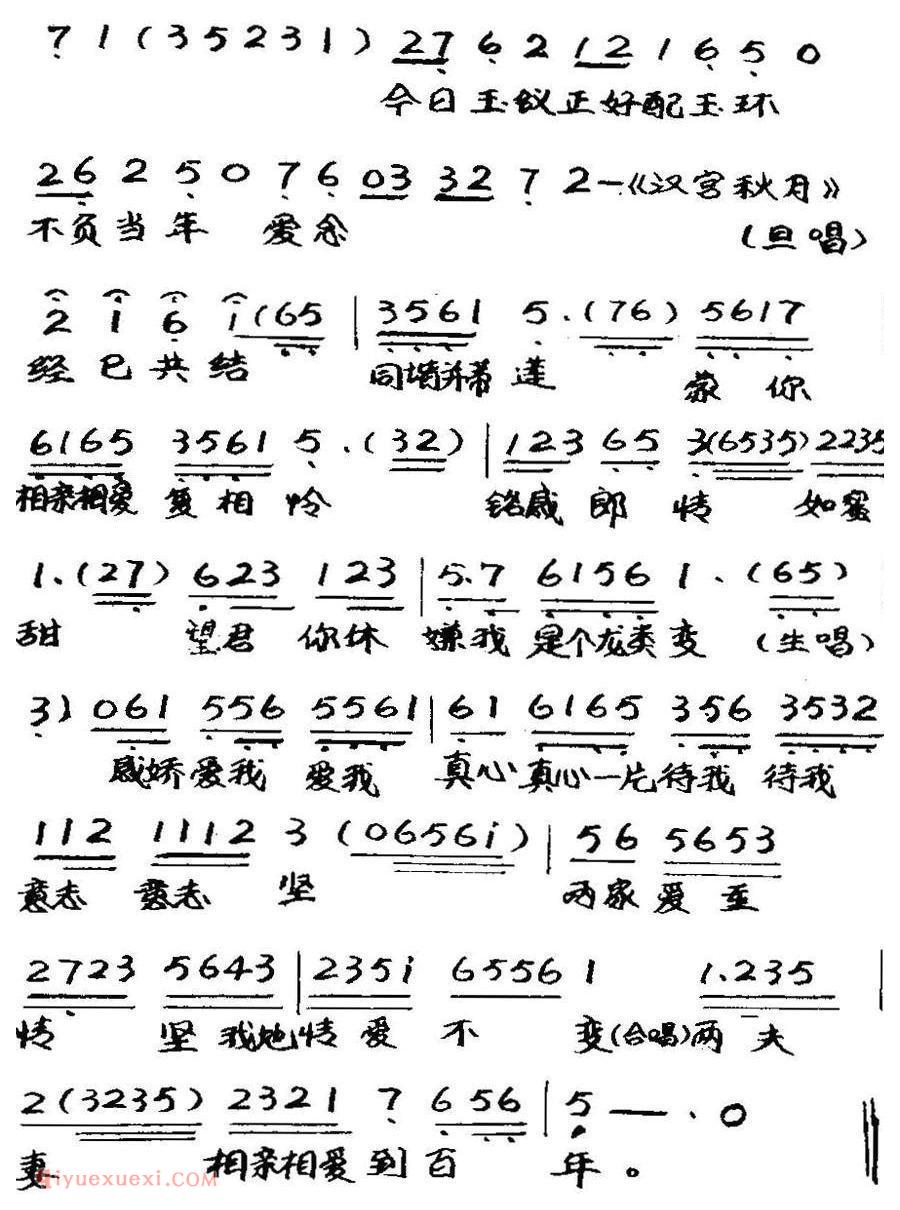 7 1 (35231) 27 6 2 12 1 6 5 0
今日玉蚁正好配玉环
26 2 5 0 7 6 03 32 7 2—《汉宫秋月》
不负当年 爱念 (旦唱)
2 1 6 i(65 | 3561 5.(76) 5617
经已共结 同埇并蒂 莲 蒙你
6165 3561 5.(32) | 123 65 3(6535) 2235
相亲相爱 复相怜 铭感郎情 如蜜
1.(27) 623 123 | 5.7 6156 1.(65)
甜 望君 你休 嫌我 是个龙类变 (生唱)
3) 061 556 5561 | 61 6165 356 3532
感娇爱我 爱我 真心真心一片待我 待我
112 1112 3 (0656i) | 56 5653
意志 意志 坚 两家爱至
2723 5643 | 235i 6556 1 1.235
情 坚 我她情爱不 变(合唱)两夫
2(3235) 2321 7 656 | 5 — . 0
妻 相亲相爱到百 年。
iyuexuexi.com